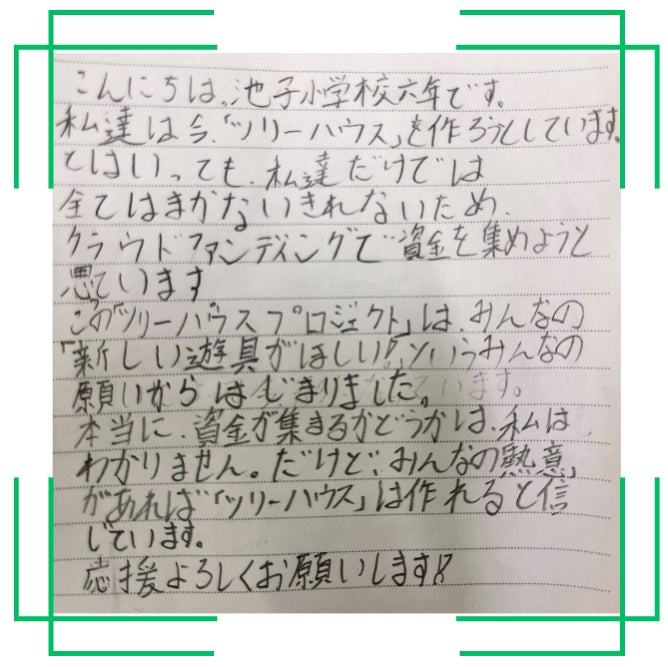 こんにちは。池子小学校六年です。
私達は今、「ツリーハウス」を作ろうとしています。
とはいっても、私達だけでは
全てはまかないきれないため、
クラウドファンディングで資金を集めようと
思ています
この「ツリーハウスプロジェクト」は、みんなの
「新しい遊具がほしい!」というみんなの
願いからはじまりました。
本当に、資金が集まるかどうかは、私は
わかりません。だけど、みんなの「熱意」
があれば「ツリーハウス」は作れると信
じています。
応援よろしくお願いします!